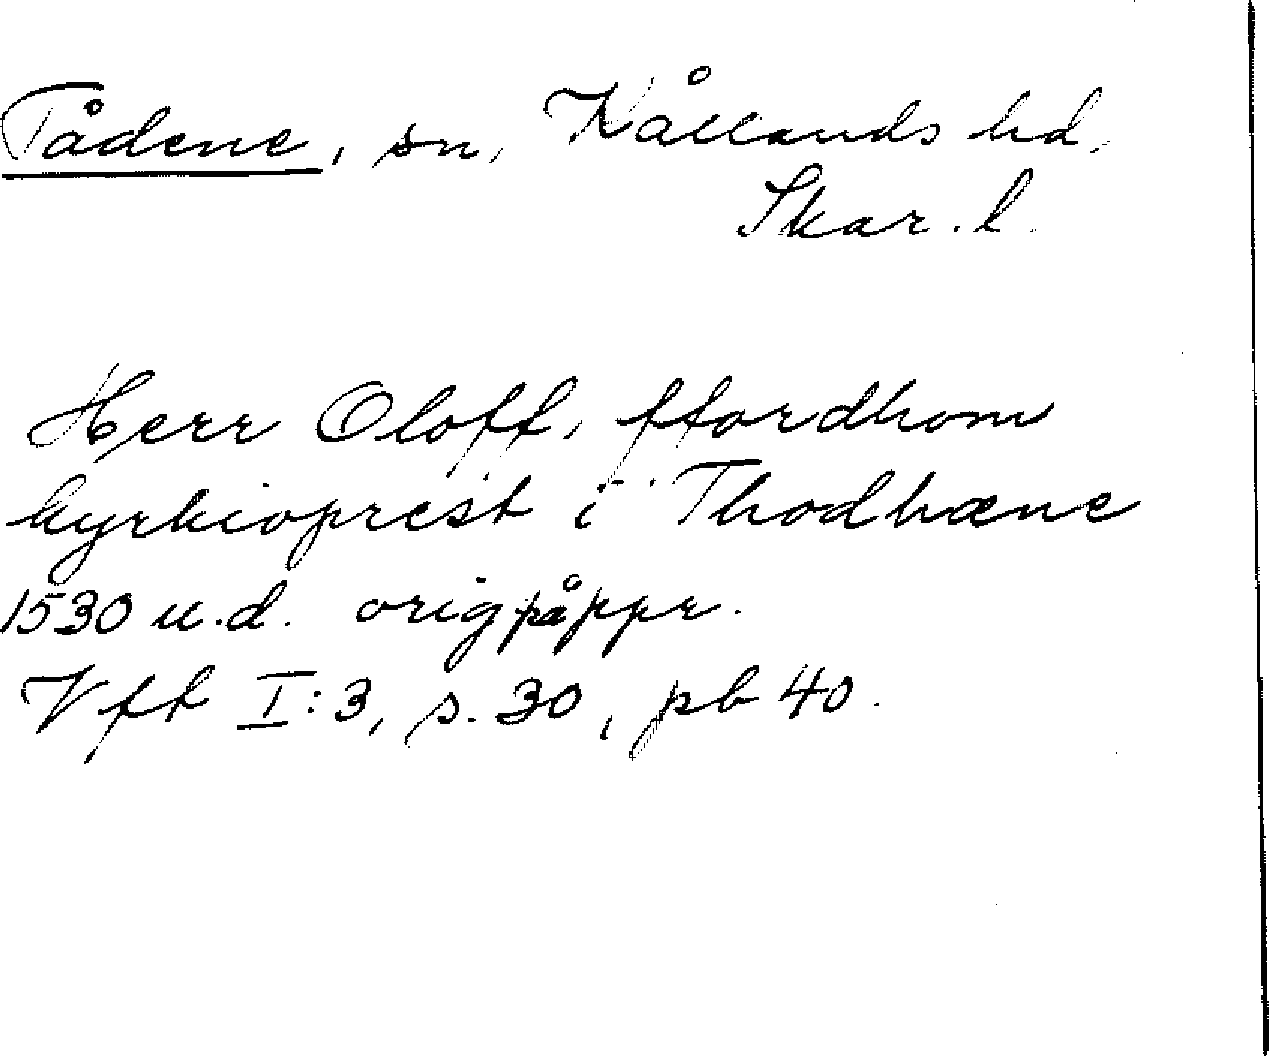 Tådene, sn, Kållands hd,
Skar. l.
Herr Oloff, ffordhom
kyrkioprest i Thodhæne
1530 u.d. orig på ppr.
Vft I:3, s. 30, pb 40.